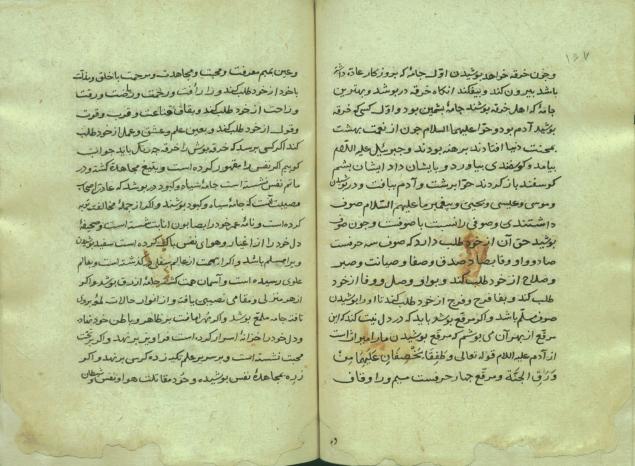 ۱۶۷
و چون خرقه خواهد پوشیدن اوّل جامهٔ که بروزکار عادة داشته
باشد بیرون کند و بیفکند انکاه خرقه درپوشد و بهترین
جامهٔ که اهل خرقه پوشند جامهٔ پشمین بود و اوّل کسی که خرقه
پوشید آدم بود و حوّا علیهما السلام چون از نعت بهشت
بمحنت دنیا افتادند برهنه بودند و جبرئیل علیه السّلام
بیامد و کوسفندی بیاورد و بایشان داد ایشان پشم
کوسفند باز کردند حوّا برشت و آدم ببافت و درپوشیدن
و موسی و عیسی و یحیی و پیغمبر ما علیهم السلام صوف
داشتندی و صوفی را نسبت با صوفست و چون صوف
پوشید حق آن از خود طلب دارد که صوف سه حرفست
صاد و واو و فا بصاد صدق و صفا و صیانت و صبر
و صلاح از خود طلب کند و بواو وصل و وفا از خود
طلب کند و بفا فرح و فرج از خود طلب کند تا او را پوشیدن
صوف مسلّم باشد و اکر مرقع پوشد باید که در دل نیت کند که این
مرقع از بهر آن می پوشم که مرقع پوشیدن ما را میراثست
از آدم علیه السلام قوله تعالی و طَفِقَا یَخْصِفَانِ عَلَیْهِمَا مِنْ
وَرَقِ الْجَنَّةِ و مرقع چهار حرفست میم و را و قاف
و عین بمیم معرفت و محبت و مجاهدت و مرحمت با خلق و مذلت
با خود از خود طلب کند و را رأفت و رحمت و ریاضت و رقت
و راحت از خود طلب کند و بقاف قناعت و قرب و قوت
و قول از خود طلب کند و بعین علم و عشق و عمل از خود طلب
کند اکر کسی پرسد که خرقه پوش را خرقه چه رنک باید جواب
کوییم اکر نفس را مقهور کرده است و بتیغ مجاهدة کشته و در
ماتم نفس نشسته است جامهٔ سیاه و کبود درپوشد که عادة اصحاب
مصیبت است که جامهٔ سیاه و کبود پوشند و اکر از جمله مخالفت توبه
کرده است و نامهٔ عمر خود را بصابون انابت شسته است و صحیفهٔ
دل خود را از اغیار و هوای نفس پاک کرده است سفید پوشیدن
ویرا مسلم باشد و اکر همت از عالم سفلی در گذشته است و بعالم
علوی رسیده است و آسمان همت کشته جامهٔ ازرق پوشد و اکر
از هر منزلی و مقامی نصیبی یافت و از انوار حالات لمعهٔ بروی
تافته جامه ملمع پوشد و اکر بهر آفت بر ظاهر و باطن خود نهاد
و دل خود را خزانهٔ اسرار کرده است فراویز برنهد و اکر بر تخت
محبت نشسته است و بر سریر علم تکیه زده کرسی برنهد و اکر
زره مجاهدهٔ نفس پوشیده و خود مقاتلت هوا و نفس و شیطان